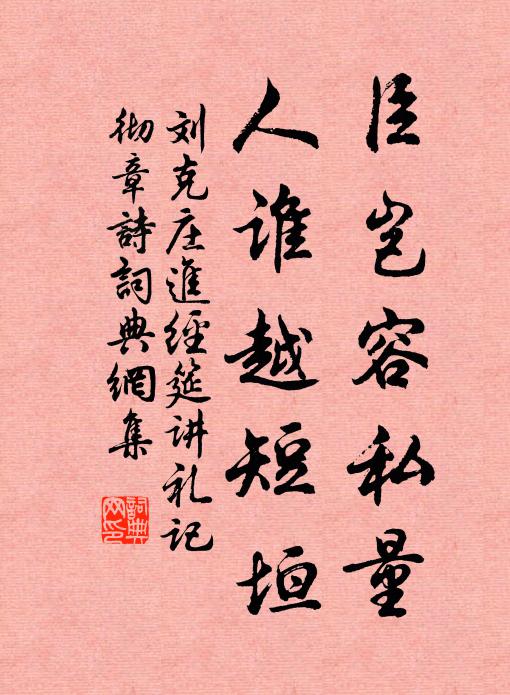 臣岂容私量
人谁越短垣
刘克庄進經筵讲礼记
彻章詩詞典網集
詞典网印